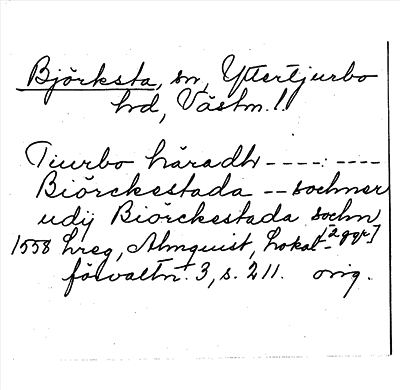 Björksta, sn, Yttertjurbo
hd, Västm. l.
Tiurbo häradh ---- : ----
Biörckestada -- sochner
udij Biörckestada sochn
[2 ggr]
1558 hreg, Almquist, Lokal-
förvaltn. 3, s. 211. orig.